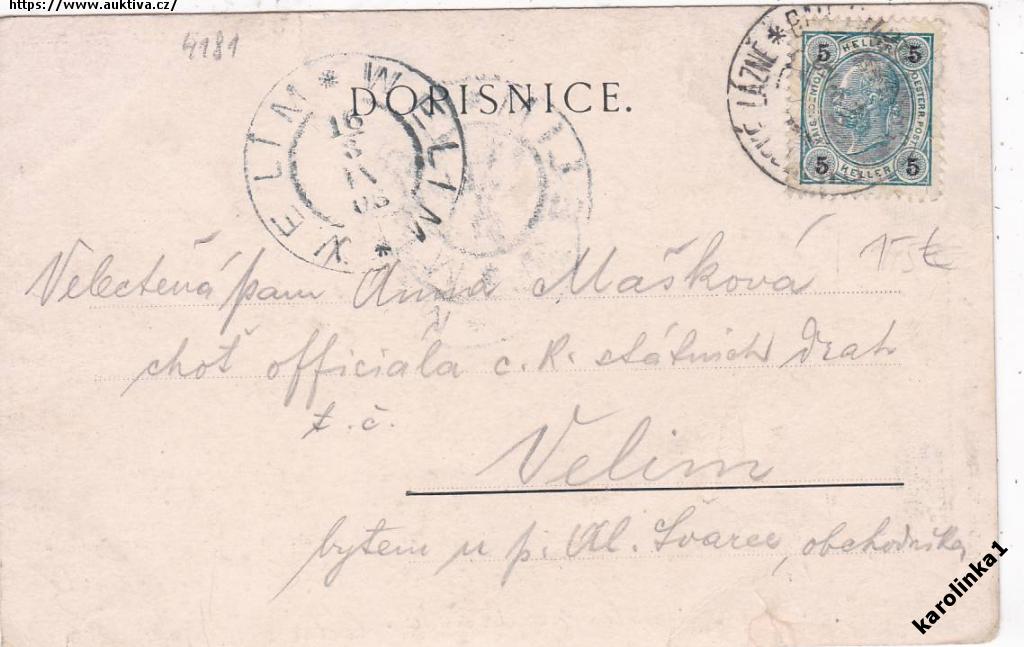 https://www.auktiva.cz/
4181
DOPISNICE.
VELIM * WELIM *
16
03
LÁZNĚ *
5 HELLER 5
5 HELLER 5
15€
Velectěná paní Anna Mašková
choť officiála c. k. státních drah
t. č.
Velim
bytem u p. Al. Švarce, obchodníka
karolinka1